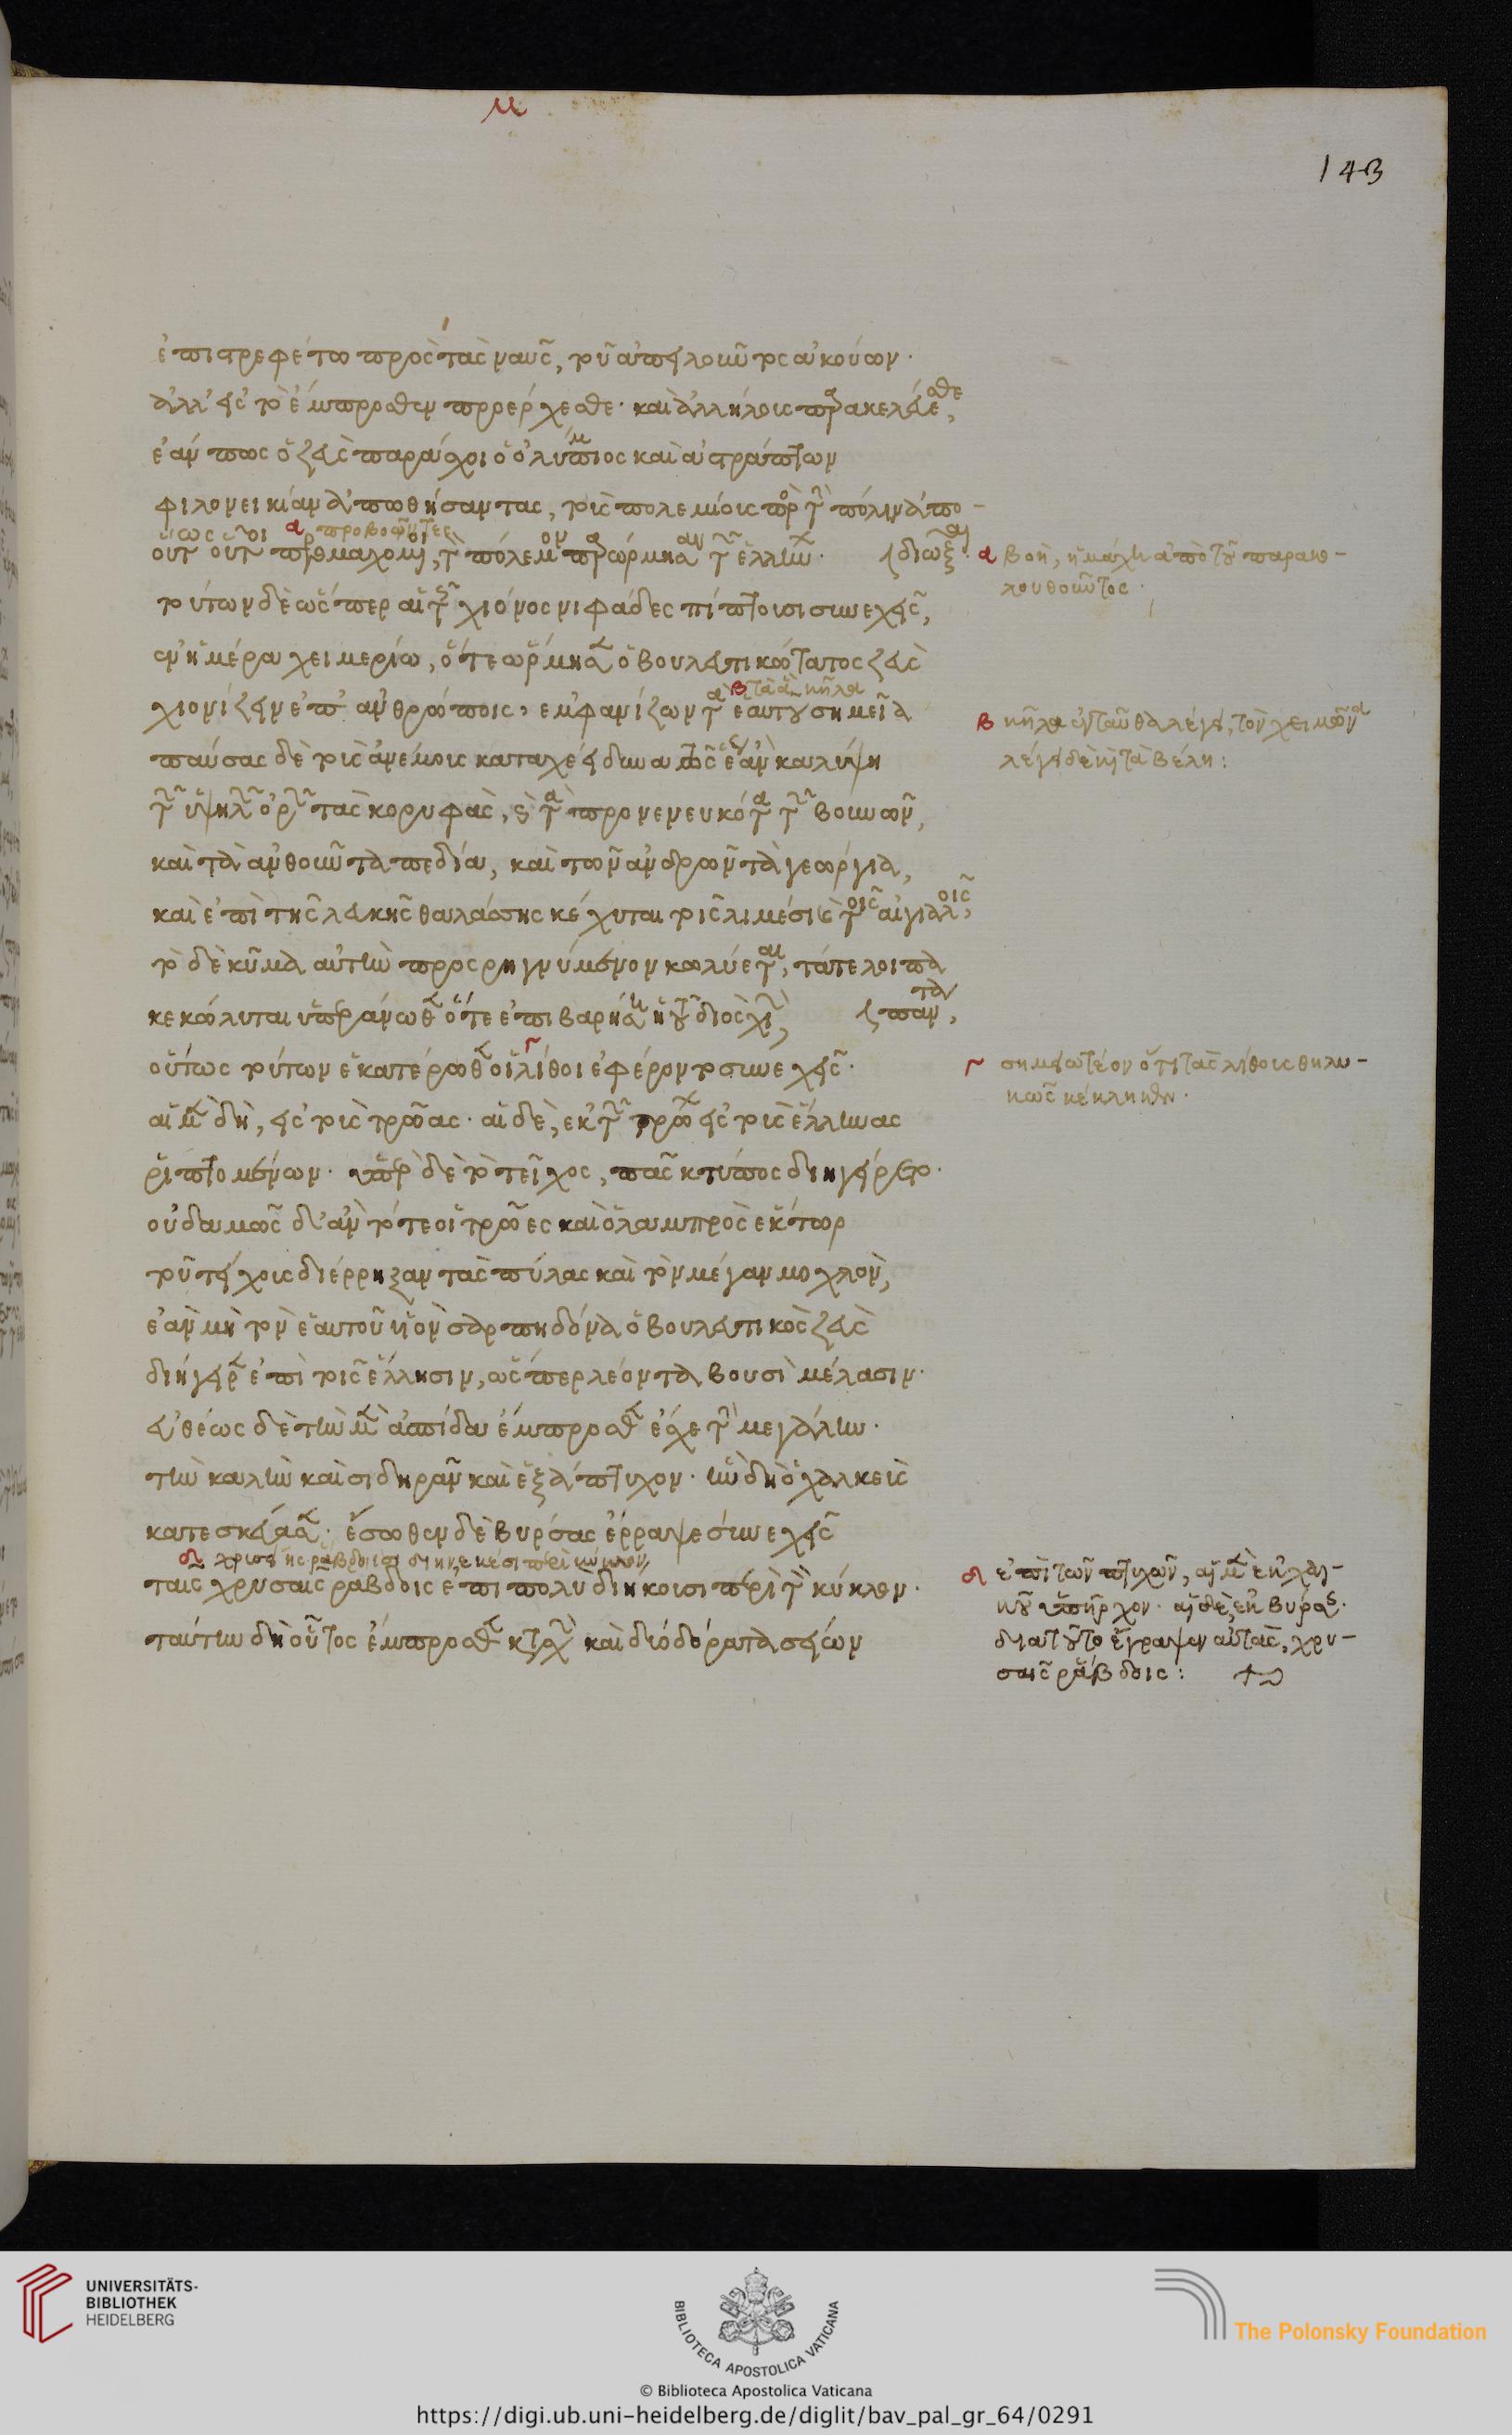 μ
143
ἐπιστρεφέτω πρὸς τὰς ναῦς, τοῦ ἀπειλοῦντος ἀκούων·
ἀλλ' εἰς τὸ ἔμπροσθεν προέρχεσθε· καὶ ἀλλήλοις παρακελεύεσθε,
ἐάν πως ὁ ζεὺς παράσχοι ὁ ὀλύμπιος καὶ ἀστράπτων
φιλονεικίαν ἀπωθήσαντας, τοὺς πολεμίους πρὸς τὴν πόλιν ἀπο-
α προβοῶντες
οὕτως οὗτοι τὸν πόλεμον παρώρμησαν τῶν ἑλλήνων· διώξαι·
τούτων δὲ ὥσπερ αἱ τῆς χιόνος νιφάδες πίπτουσι συνεχεῖς,
ἐν ἡμέρα χειμερίω, ὅτε ὥρμησεν ὁ βουλευτικώτατος ζεὺς
β τὰ ἃ κῆλα
χιονίζειν ἐπ' ἀνθρώποις, ἐμφανίζων τὰ ἑαυτοῦ σημεῖα
παύσας δὲ τοὺς ἀνέμους καταχέει ἕως ἂν καλύψη
τῶν ὑψηλῶν ὀρῶν τὰς κορυφὰς, καὶ τὰ προνενευκότα τῶν βουνῶν,
καὶ τὰ ἀνθοῦντα πεδία, καὶ τῶν ἀνδρῶν τὰ γεώργια,
καὶ ἐπὶ τῆς λευκῆς θαλάσσης κέχυται τοῖς λιμέσι καὶ τοῖς αἰγιαλοῖς,
τὸ δὲ κῦμα αὐτὴν προσρηγνύμενον κωλύεται, τάτε λοιπὰ
κεκάλυπται ὑπεράνωθεν ὅτε ἐπιβαρήσει ἡ τοῦ διὸς χιὼν, πάντα,
οὕτως τούτων ἑκατέρωθεν οἱ λίθοι ἐφέροντο συνεχεῖς·
αἱ μὲν δὴ, εἰς τοὺς τρῶας· αἱ δὲ, ἐκ τῶν τρώων εἰς τοὺς ἕλληνας
ῥιπτομένων· ὑπὲρ δὲ τὸ τεῖχος, πᾶς κτύπος διηγείρετο·
οὐδαμῶς δ' ἂν τότε οἱ τρῶες καὶ ὁ λαμπρὸς ἕκτωρ
τοῦ τείχους διέρρηξαν τὰς πύλας καὶ τὸν μέγαν μοχλὸν,
ἐὰν μὴ τὸν ἑαυτοῦ υἱὸν σαρπηδόνα ὁ βουλευτικὸς ζεὺς
διήγειρεν ἐπὶ τοῖς ἕλλησιν, ὥσπερ λέοντα βουσὶ μέλασιν·
εὐθέως δὲ τὴν μὲν ἀσπίδα ἔμπροσθεν ἔσχε τὴν μεγάλην·
τὴν καλὴν καὶ σιδηρᾶν καὶ ἑξάπτυχον· ἣν δὴ ὁ χαλκεὺς
κατεσκεύασεν· ἔσωθεν δὲ βύρσας ἔρραψε συνεχεῖς
δ χρυσείης ῥάβδοισι διηνεκέσι περὶ κύκλον,
ταῖς χρυσαῖς ῥάβδοις ἐπιπολὺ διηκούσι περὶ τὸν κύκλον·
ταύτην δὴ οὗτος ἔμπροσθεν κατασχὼν καὶ δύο δόρατα σείων
α βοὴ, ἡ μάχη ἀπὸ τοῦ παρακο-
λουθοῦντος·
β κῆλα ἐνταῦθα λέγει, τὸν χειμῶνα
λέγει δὲ καὶ τὰ βέλη:
γ σημειωτέον ὅτι τὰς λίθους θηλυ-
κῶς κέκληκεν·
δ ἐπὶ τῶν πτυχῶν, αἱ μὲν ἐκ χαλ-
κοῦ ὑπῆρχον· αἱ δὲ, ἐκ βύρσης·
διατοῦτο ἔγραψεν αὐτὰς, χρυ-
σαῖς ῥάβδοις:
UNIVERSITÄTS-
BIBLIOTHEK
HEIDELBERG
BIBLIOTECA APOSTOLICA VATICANA
The Polonsky Foundation
© Biblioteca Apostolica Vaticana
https://digi.ub.uni-heidelberg.de/diglit/bav_pal_gr_64/0291